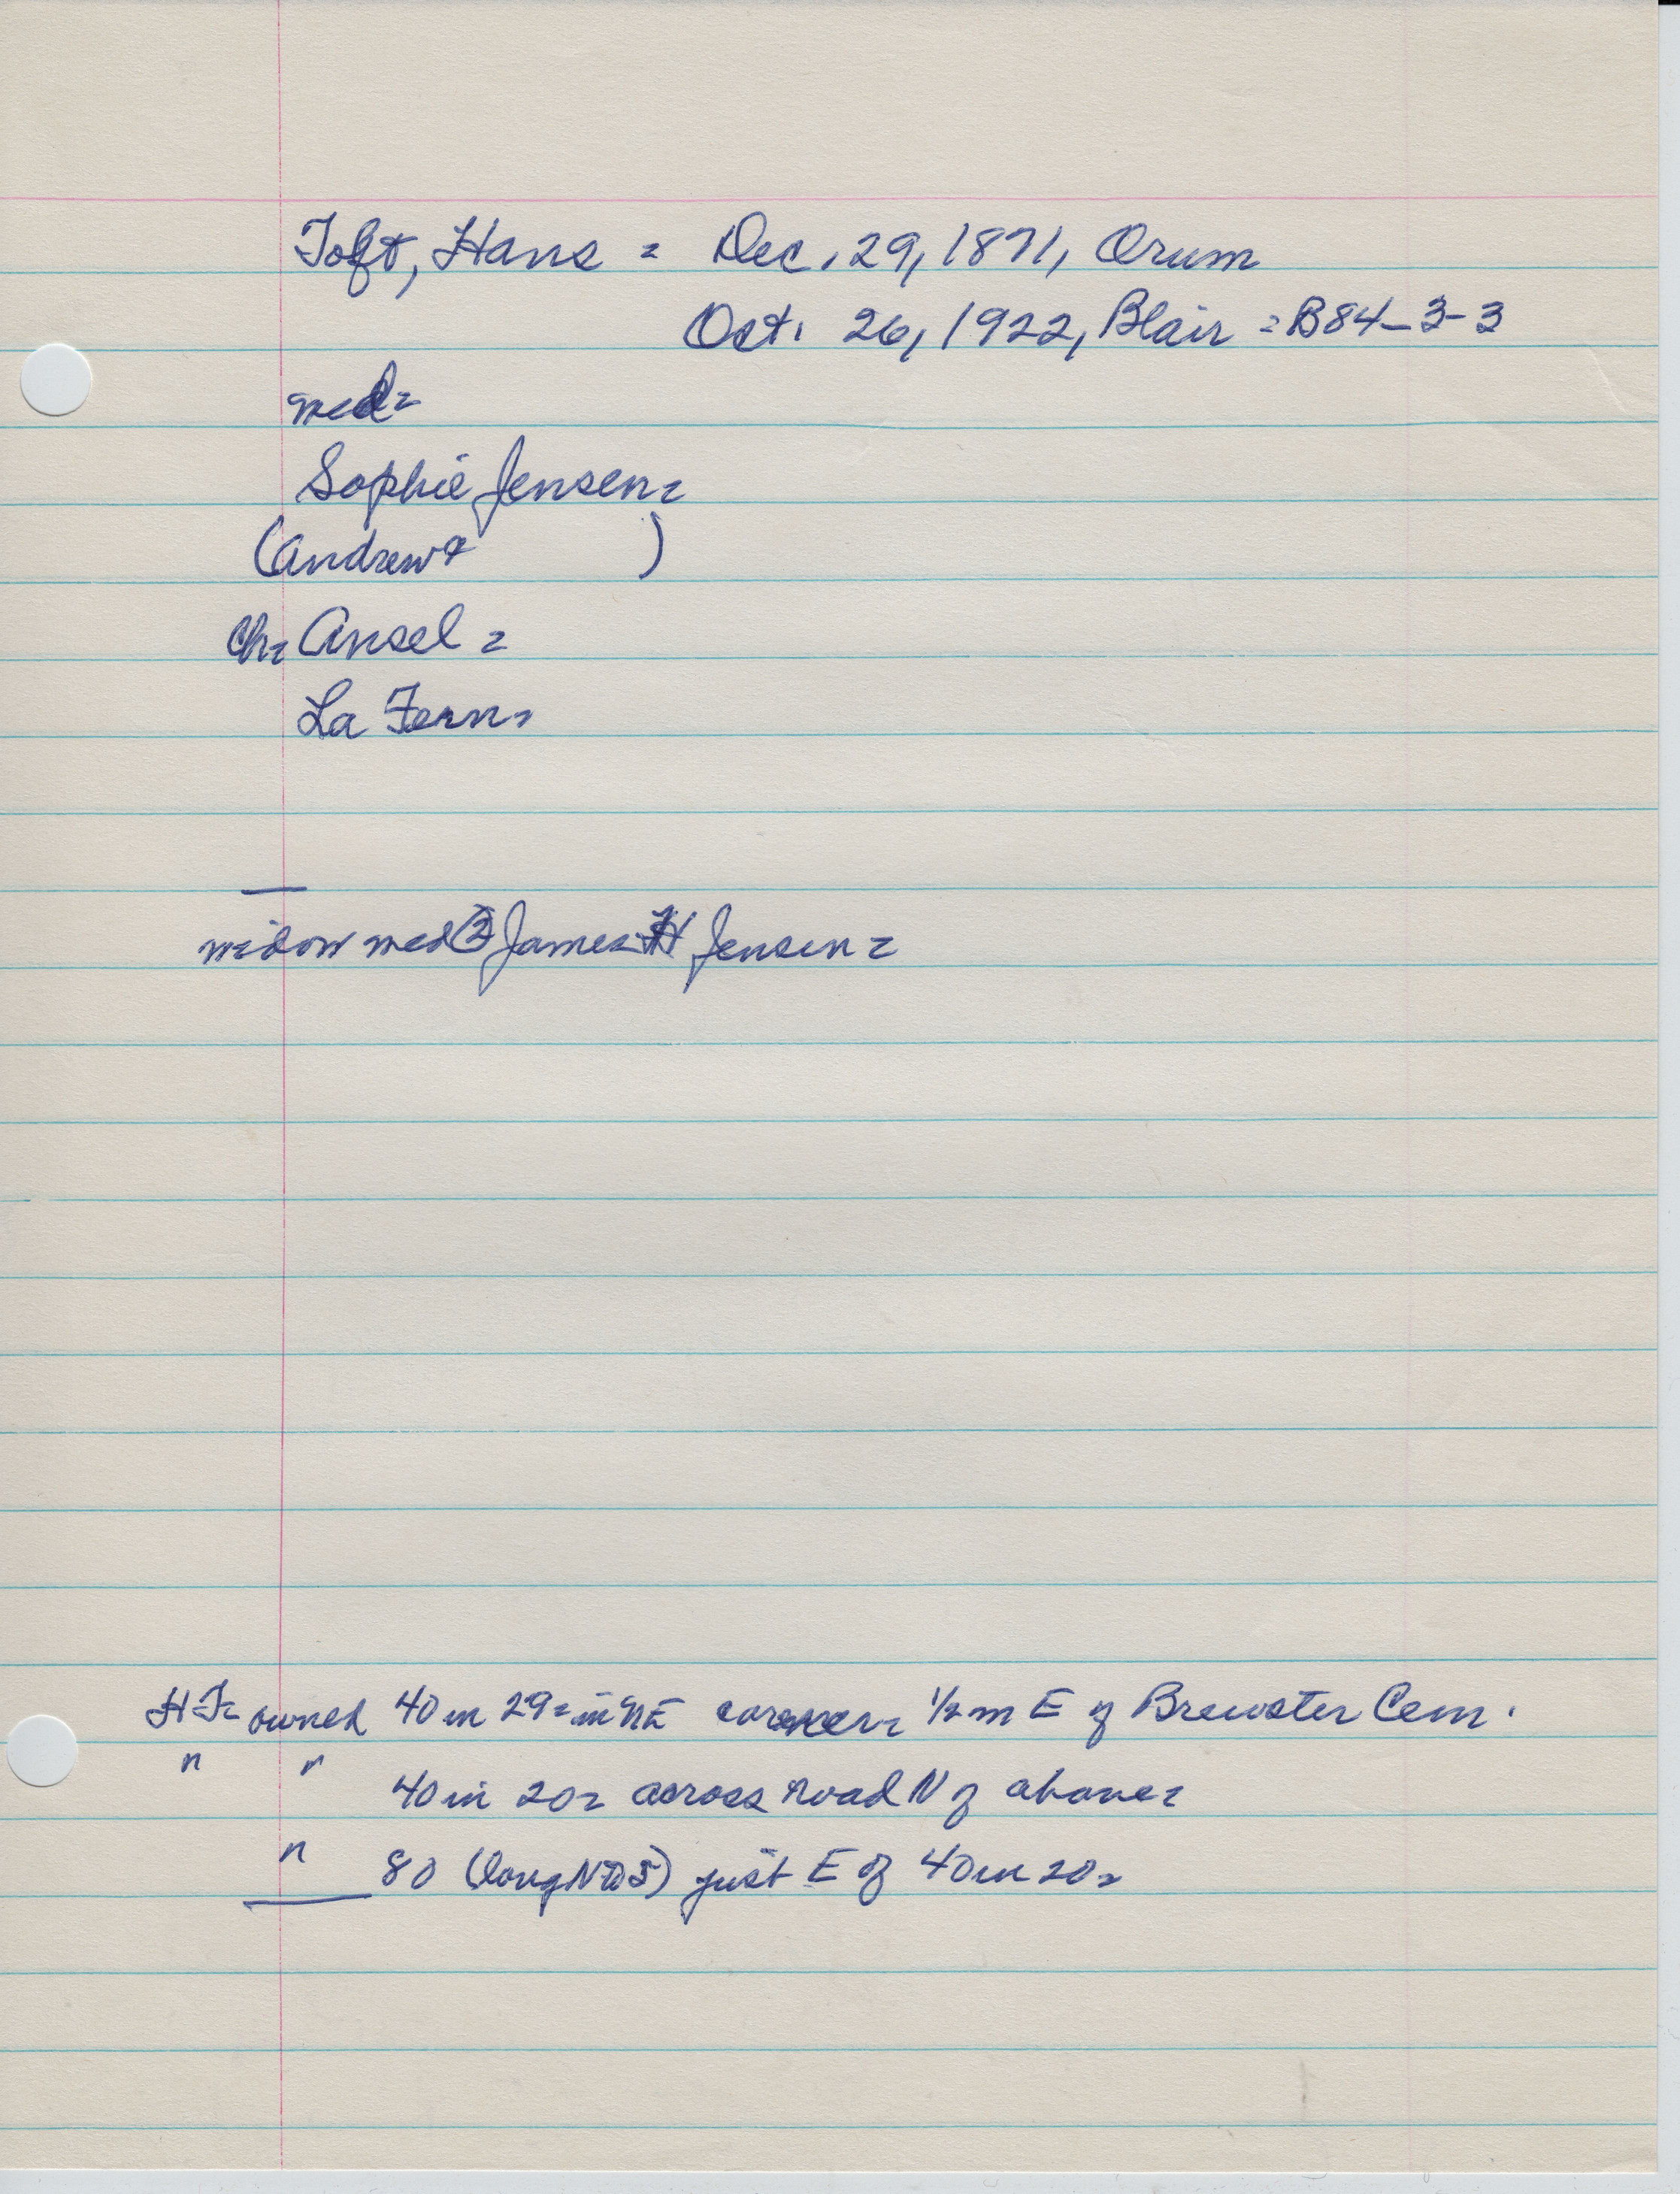 Toft, Hans = Dec. 29, 1871, Orum
Oct. 26, 1922, Blair = B84-3-3
med=
Sophie Jensen=
(Andrew &            )
Ch= Ansel =
La Fern=
widow med ② James H Jensen =
H T= owned 40 in 29 = in NE corner = 1/2 m E of Brewster Cem.
" " 40 in 20 = across road N of above =
" 80 (long N to S) just E of 40 in 20 =